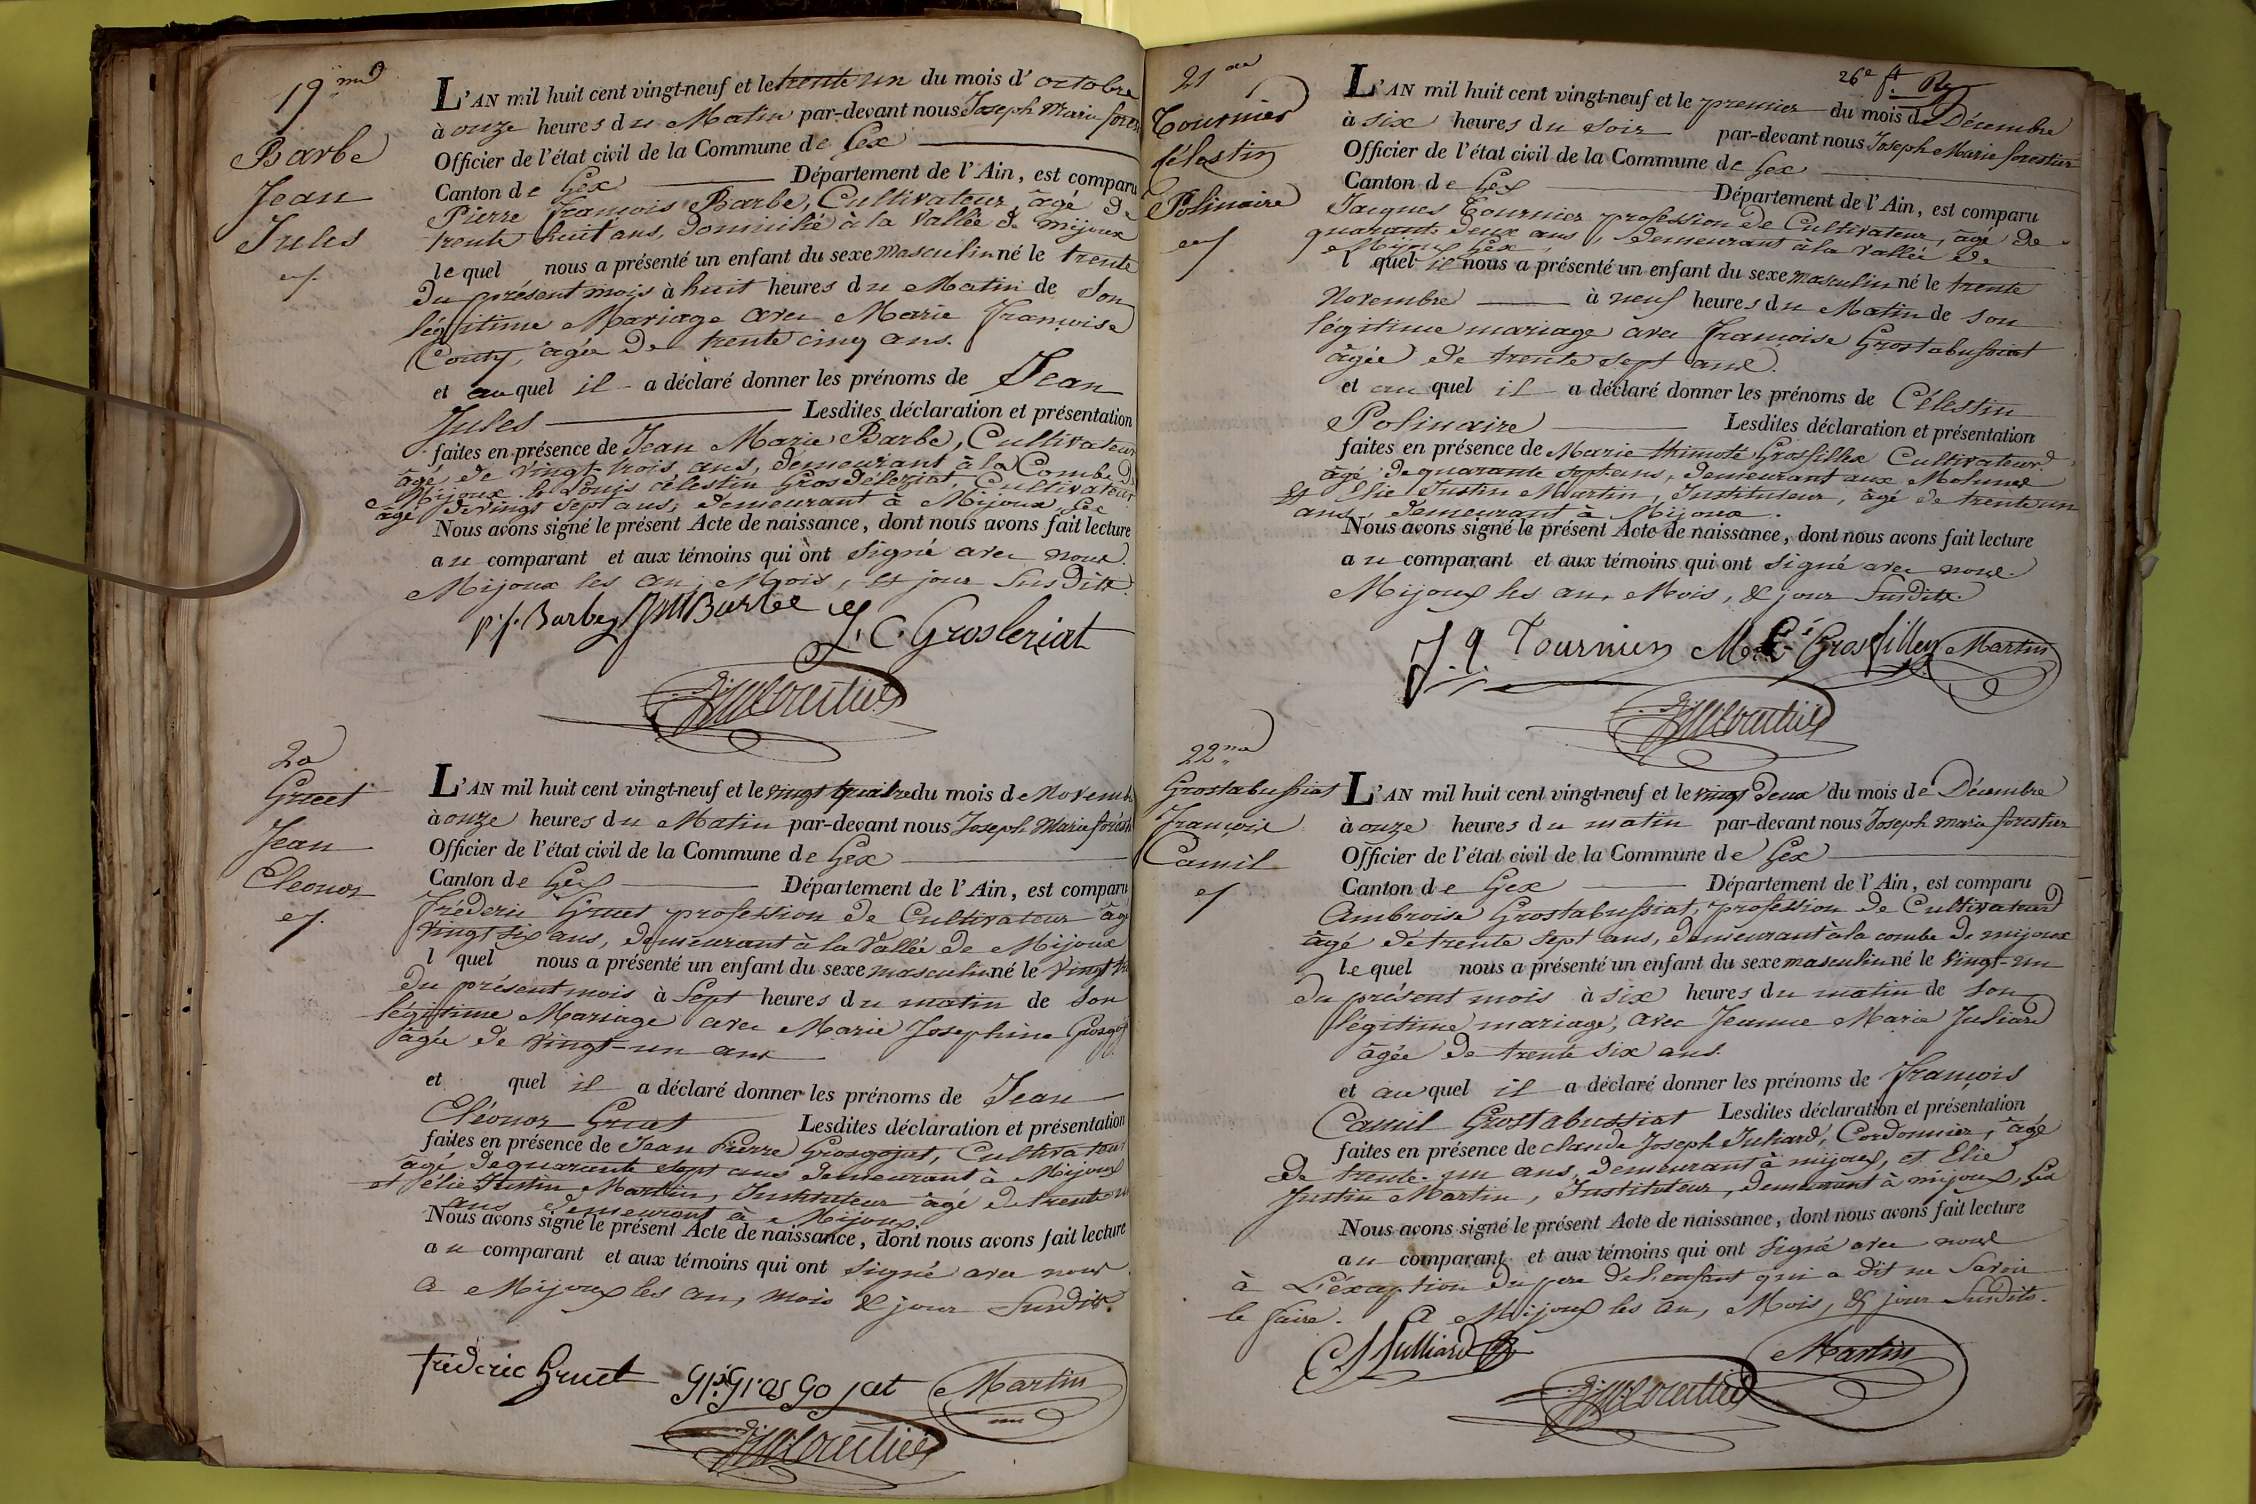 19.me
Barbe
Jean
Jules
L'AN mil huit cent vingt-neuf et le trente un du mois d'octobre
à onze heures du Matin par-devant nous Joseph Marie
Officier de l'état civil de la Commune de Gex
Canton de Gex Département de l'Ain, est comparu
Pierre François Barbe, Cultivateur, âgé de
trente huit ans, domicilié à la Vallée de mijoux
lequel nous a présenté un enfant du sexe masculin né le trente
du présent mois à huit heures du Matin de son
légitime Mariage avec Marie Françoise
Couty, âgée de trente cinq ans.
et auquel il a déclaré donner les prénoms de Jean
Jules Lesdites déclaration et présentation
faites en présence de Jean Marie Barbe, Cultivateur
âgé de vingt-trois ans, demeurant à la Combe de
Mijoux & Louis célestin Grosdeleziat, Cultivateur
âgé de vingt sept ans, demeurant à Mijoux, Gex
Nous avons signé le présent Acte de naissance, dont nous avons fait lecture
au comparant et aux témoins qui ont signé avec nous.
Mijoux les an, Mois, et jour Susdits.
p. f. Barbe JM Barbe
L. C. Grosleziat
20
Gruet
Jean
Eleonor
L'AN mil huit cent vingt-neuf et le vingt quatre du mois de Novembre
à onze heures du Matin par-devant nous Joseph Marie
Officier de l'état civil de la Commune de Gex
Canton de Gex Département de l'Ain, est comparu
Fréderic Gruet profession de Cultivateur âgé
vingt six ans, demeurant à la Vallée de Mijoux
l quel nous a présenté un enfant du sexe masculin né le vingt
du présent mois à Sept heures du matin de son
légitime Mariage avec Marie Josephine
âgée de vingt-un ans
et quel il a déclaré donner les prénoms de Jean
Eléonor Gruet Lesdites déclaration et présentation
faites en présence de Jean Pierre Grosgojat, Cultivateur
âgé de quarante sept ans demeurant à Mijoux
et élie Justin Martin, Instituteur âgé de trente un
ans demeurant à Mijoux.
Nous avons signé le présent Acte de naissance, dont nous avons fait lecture
au comparant et aux témoins qui ont signé avec nous
A Mijoux les an, mois & jour Susdits.
fréderic Gruet gp. gros gojat Martin
26e ft.
21
Tournier
Célestin
Polinaire
L'AN mil huit cent vingt-neuf et le premier du mois de Décembre
à six heures du soir par-devant nous Joseph Marie forestier
Officier de l'état civil de la Commune de Gex
Canton de Gex Département de l'Ain, est comparu
Jacques Tournier profession de Cultivateur, âgé de
quarante deux ans, demeurant à la vallée de
Mijoux Gex,
l quel il nous a présenté un enfant du sexe masculin né le trente
Novembre à neuf heures du Matin de son
légitime mariage avec françoise Grostabussiat
âgée de trente sept ans.
et au quel il a déclaré donner les prénoms de Célestin
Polinaire Lesdites déclaration et présentation
faites en présence de Marie thimoté Grosfillex Cultivateur
âgé de quarante sept ans, demeurant aux Molunes
Et Elie Justin Martin, Instituteur, âgé de trente un
ans, demeurant à Mijoux.
Nous avons signé le présent Acte de naissance, dont nous avons fait lecture
au comparant et aux témoins qui ont signé avec nous.
Mijoux les an, Mois, & jour Susdits
J. q. Tournier Grosfilley Martin
22me
Grostabussiat
françois
Camil
L'AN mil huit cent vingt-neuf et le vingt deux du mois de Décembre
à onze heures du matin par-devant nous Joseph marie forestier
Officier de l'état civil de la Commune de Gex
Canton de Gex Département de l'Ain, est comparu
Ambroise Grostabussiat, profession de Cultivateur
âgé de trente sept ans, demeurant à la combe de mijoux
lequel nous a présenté un enfant du sexe masculin né le vingt-un
du présent mois à six heures du matin de son
légitime mariage, avec Jeanne Marie Juliard
âgée de trente six ans.
et au quel il a déclaré donner les prénoms de françois
Camil Grostabussiat Lesdites déclaration et présentation
faites en présence de claude Joseph Juliard, Cordonnier, âgé
de trente-un ans, demeurant à mijoux, et Elie
Justin Martin, Instituteur, demeurant à mijoux, Gex
Nous avons signé le présent Acte de naissance, dont nous avons fait lecture
au comparant et aux témoins qui ont signé avec nous
à L'éxception du pere de l'enfant qui a dit ne Savoir
le faire. A Mijoux les an, Mois, & jour Susdits.
CJ Julliard Martin